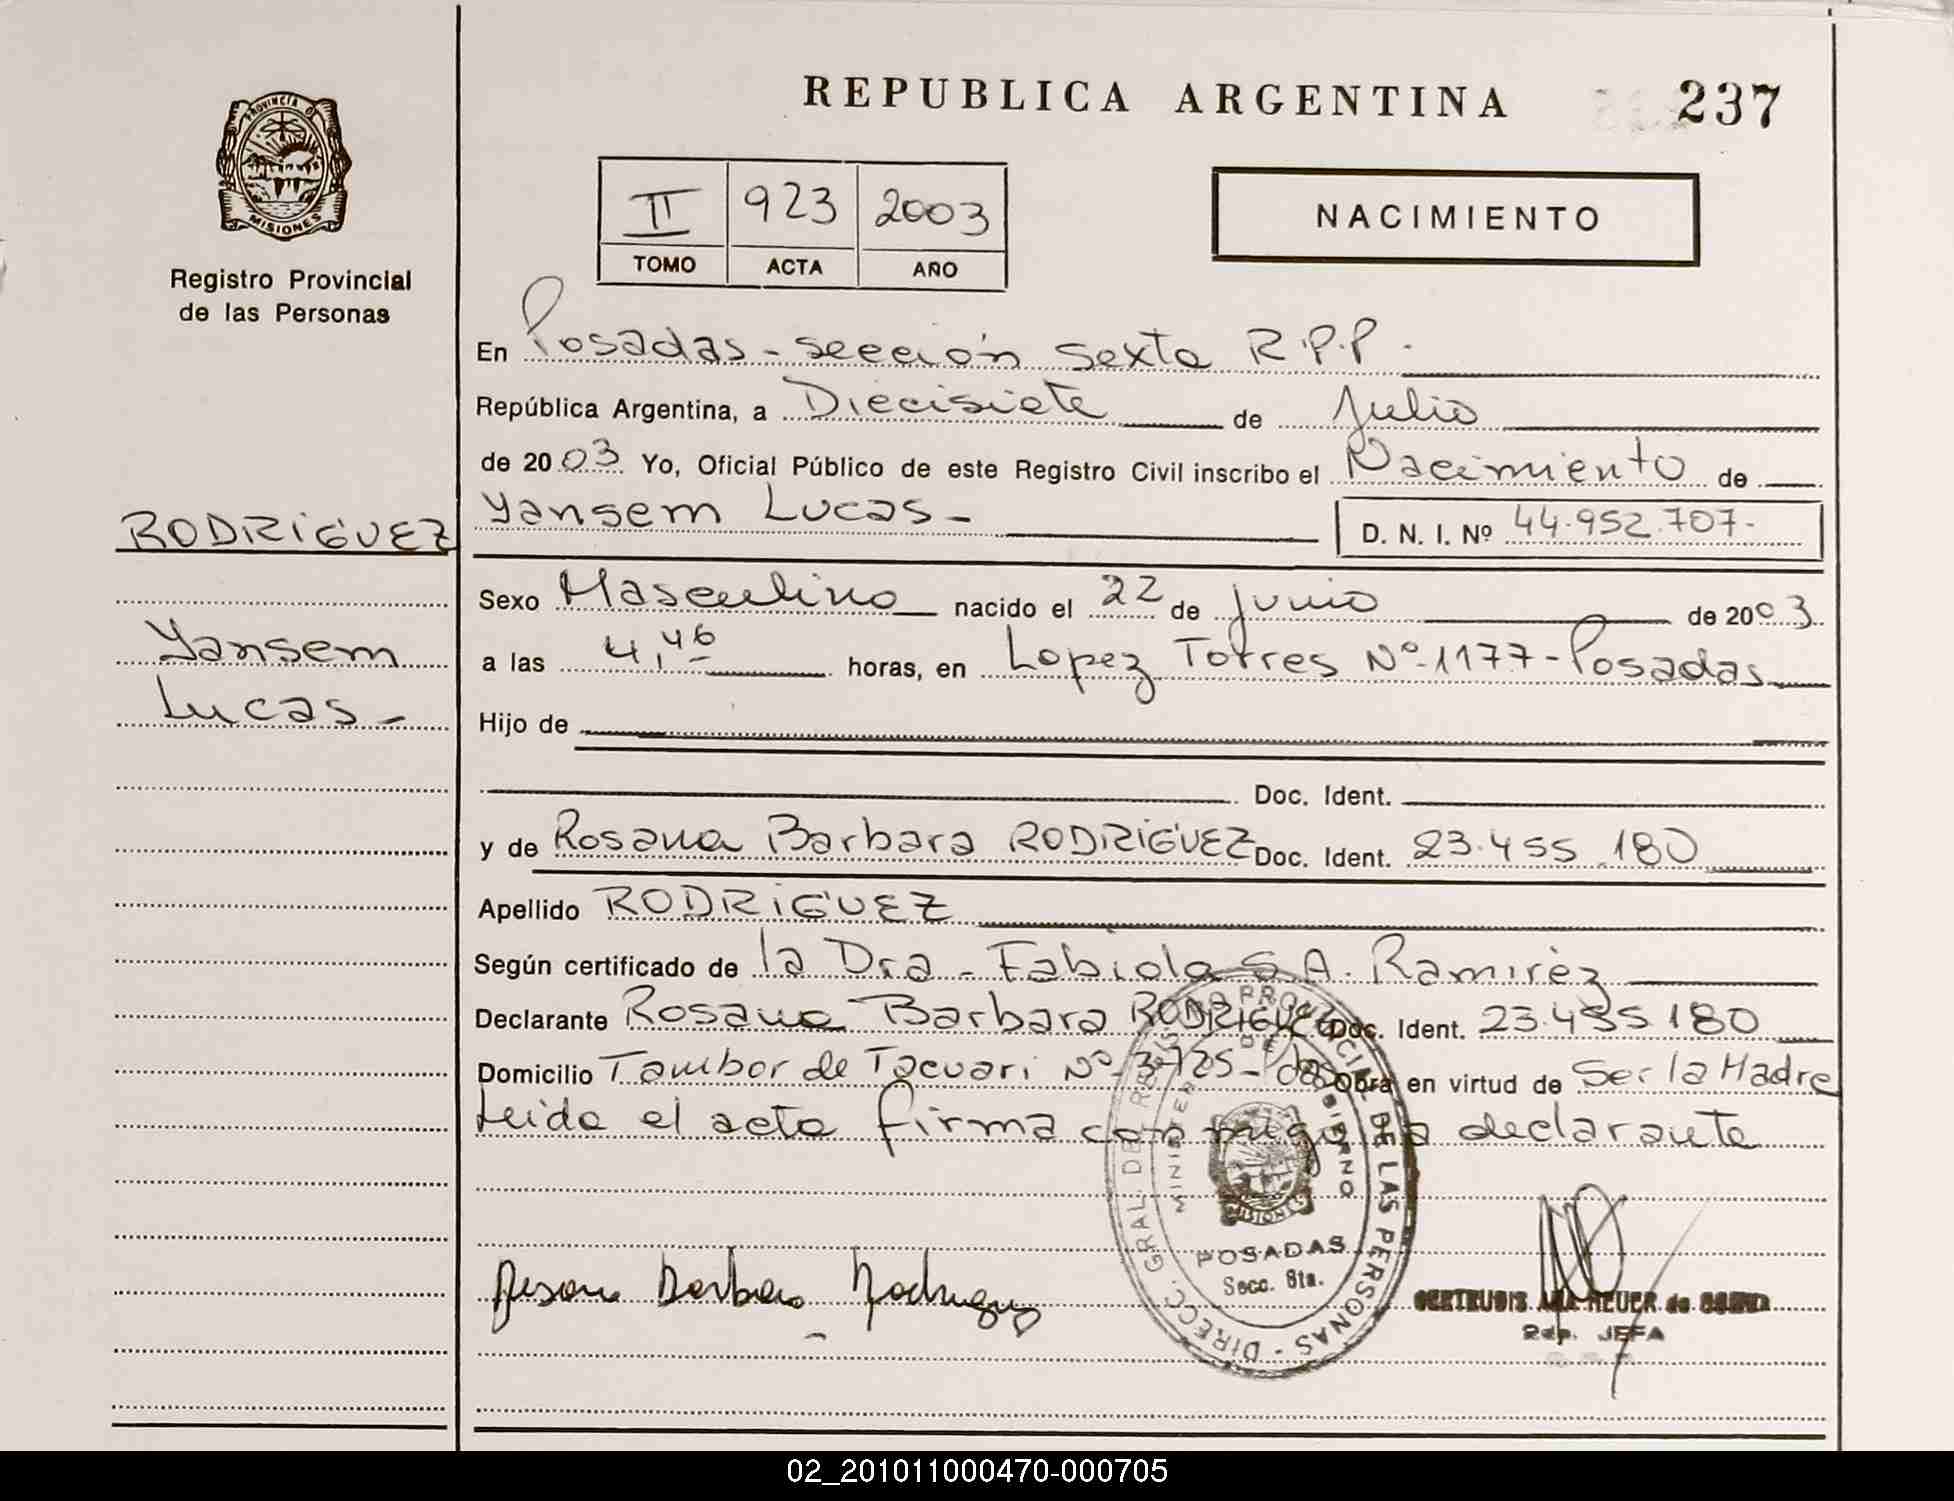 REPUBLICA ARGENTINA 237
PROVINCIA D
MISIONES
Registro Provincial
de las Personas
II 923 2003
TOMO ACTA AÑO
NACIMIENTO
En Posadas - sección sexta R.P.P.
República Argentina, a Diecisiete de Julio
de 2003 Yo, Oficial Público de este Registro Civil inscribo el Nacimiento de
Yansem Lucas -
D. N. I. Nº 44.952.707-
RODRIGUEZ
Yansem
Lucas -
Sexo Masculino nacido el 22 de junio de 2003
a las 4,46 horas, en Lopez Torres Nº 1177 - Posadas
Hijo de
Doc. Ident.
y de Rosana Barbara RODRIGUEZ Doc. Ident. 23.455.180
Apellido RODRIGUEZ
Según certificado de la Dra. Fabiola S. A. Ramirèz
Declarante Rosana Barbara RODRIGUEZ Doc. Ident. 23.455180
Domicilio Tambor de Tacuari Nº 3725 - Pdas Obra en virtud de Ser la Madre
Leida el acta firma conmigo la declarante
DIRECC. GRAL DEL REGISTRO PROVINCIAL DE LAS PERSONAS -
MINISTERIO DE GOBIERNO
MISIONES
POSADAS
Secc. 6ta.
Rosana Barbara Rodriguez
GERTRUDIS ANA NEUER de
Rep. JEFA
02_201011000470-000705